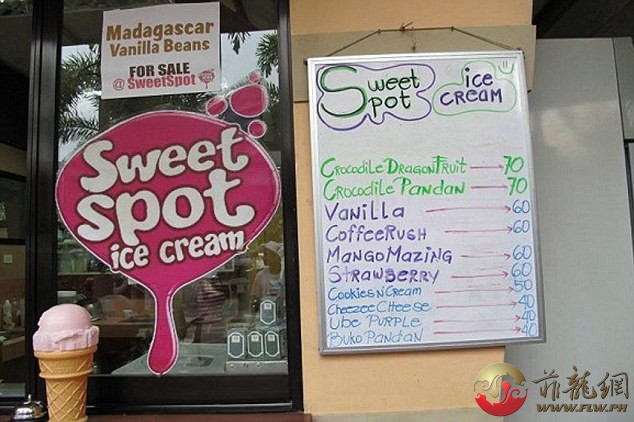 Madagascar
Vanilla Beans
FOR SALE
@ SweetSpot
Sweet
spot
ice cream
Sweet Spot
ice CREAM
CROCODILE DRAGONFRUIT 70
CROCODILE PANDAN 70
VANILLA 60
COFFEERUSH 60
MANGOMAZING 60
STRAWBERRY 60
COOKIESNCREAM 50
CHEEZECHEESE 40
UBE PURPLE 40
BUKO PANDAN 40
菲龍網
WWW.FLW.PH